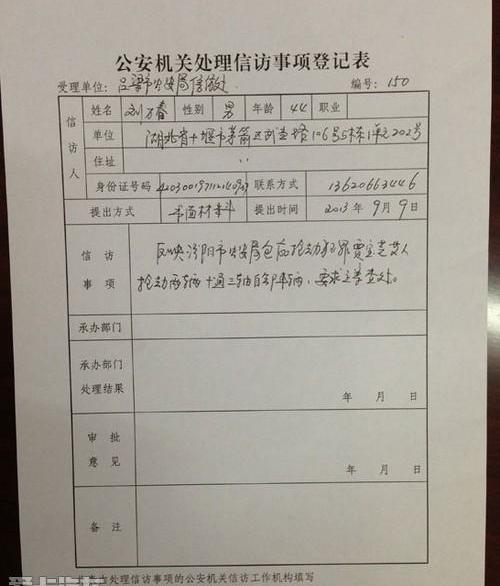 公安机关处理信访事项登记表
受理单位：吕梁市公安局信访处 编号：150
信访人
姓名 刘万春 性别 男 年龄 44 职业
单位 湖北省十堰市茅箭区 路106号5栋1单元202号
住址 〃
身份证号码 联系方式 13620663446
提出方式 书面材料 提出时间 2013年9月9日
信访 反映汾阳市公安局包庇抢劫犯罪贾 等人
事项 抢劫两辆十通三轴自卸车辆，要求立案查处。
承办部门
承办部门
处理结果
年 月 日
审批
意见
年 月 日
备注
处理信访事项的公安机关信访工作机构填写